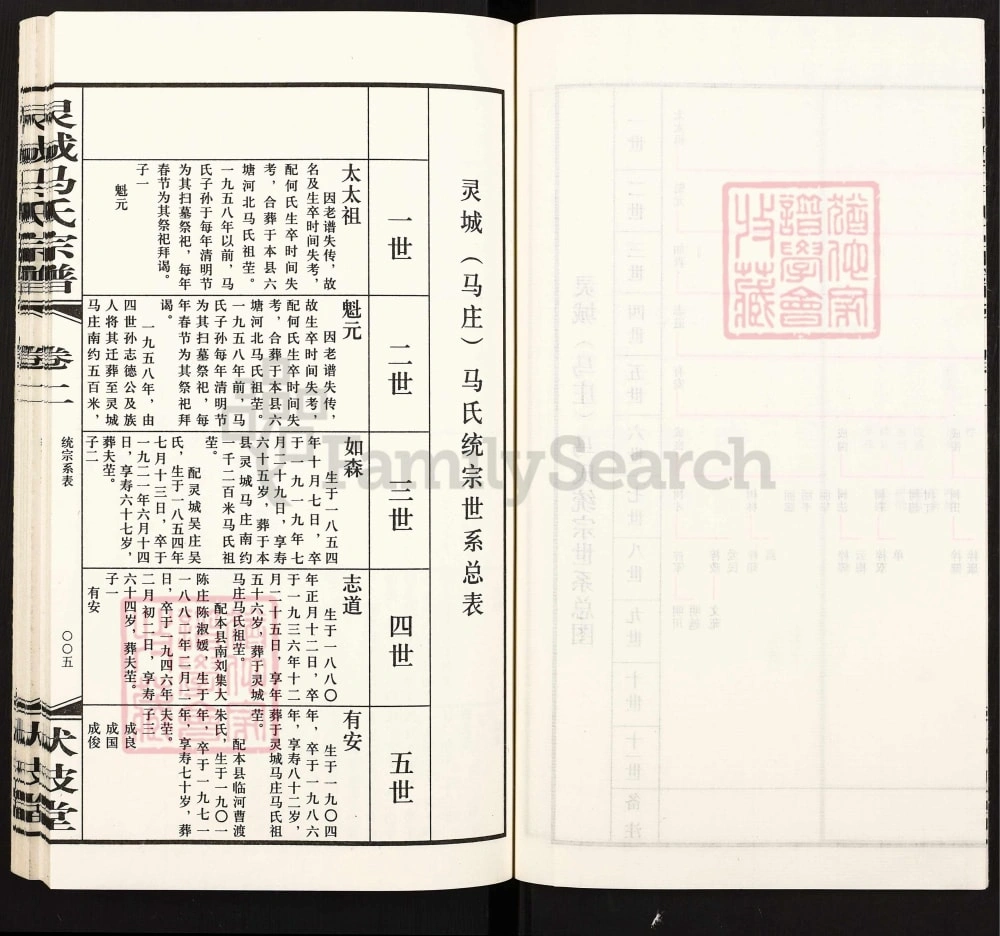 灵城（马庄）马氏统宗世系总表
一世
太太祖
因老谱失传，故
名及生卒时间失考，
配何氏生卒时间失
考，合葬于本县六
塘河北马氏祖茔。
一九五八年以前，马
氏子孙于每年清明节
为其扫墓祭祀，每年
春节为其祭祀拜谒。
子一
魁元
二世
魁元
因老谱失传，
故生卒时间失考，
配何氏生卒时间失
考，合葬于本县六
塘河北马氏祖茔。
一九五八年前，马
氏子孙每年清明节
为其扫墓祭祀，每
年春节为其祭祀拜
谒。
一九五八年，由
四世孙志德公及族
人将其迁葬至灵城
马庄南约五百米，
三世
如森
生于一八五四
年十月七日，卒
于一九一九年七
月二十九日，享寿
六十五岁，葬于本
县灵城马庄南约
一千二百米马氏祖
茔。
配灵城吴庄吴
氏，生于一八五四年
七月十三日，卒于
一九二一年六月十四
日，享寿六十七岁，
葬夫茔。
子二
四世
志道
生于一八八〇
年正月十二日，卒
于一九三六年十二
月二十五日，享年
五十六岁，葬于灵城
马庄马氏祖茔。
配本县南刘集大
陈庄陈淑媛，生于
一八八二年二月二
日，卒于一九四六年
二月初二日，享寿
六十四岁，葬夫茔。
子一
有安
五世
有安
生于一九〇四
年，卒于一九八六
年，享寿八十二岁，
葬于灵城马庄马氏祖
茔。
配本县临河曹渡
朱氏，生于一九〇一
年，卒于一九七一
年，享寿七十岁，葬
夫茔。
子三
成良
成国
成俊
灵城马氏宗谱
卷二
统宗系表
〇〇五
伏枝堂
FamilySearch